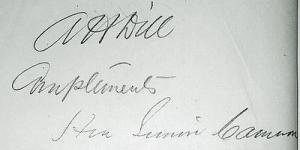 A H Dill
Compliments
Hon Simon Cameron